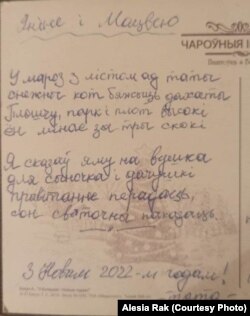 Яніне і Мацвею
ЧАРОЎНЫ І
У мароз з лістом ад таты
снежны кот бяжыць дахаты
Плошчу, парк і плот высокі
ён мінае за тры скокі
Я сказаў яму на вушка
для сыночка і дачушкі
прывітанне перадаць,
сон святочны паказаць.
З Новым 2022-м годам!
тата
Alesia Rak (Courtesy Photo)